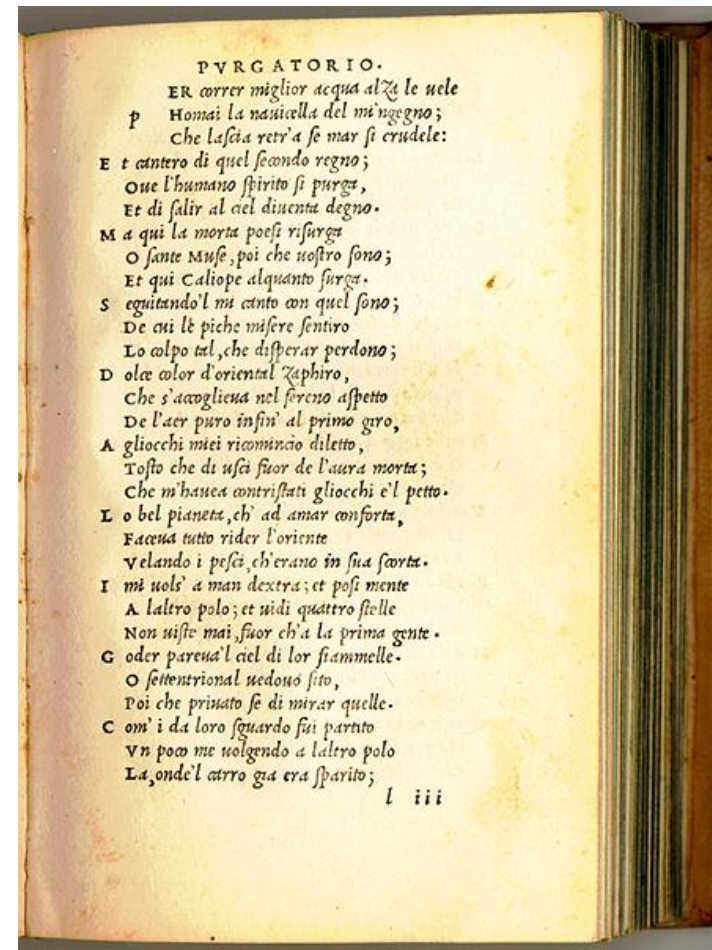 PVRGATORIO.
ER correr miglior acqua alza le uele
p Homai la nauicella del mi'ngegno;
Che lascia retr'a se mar si crudele:
E t cantero di quel secondo regno;
Oue l'humano spirito si purga,
Et di salir al ciel diuenta degno.
M a qui la morta poesi risurga
O sante Muse, poi che uostro sono;
Et qui Caliope alquanto surga.
S eguitando'l mi canto con quel sono;
De cui le piche misere sentiro
Lo colpo tal, che disperar perdono;
D olce color d'oriental Zaphiro,
Che s'accoglieua nel sereno aspetto
De l'aer puro infin' al primo giro,
A gliocchi miei ricominciò diletto,
Tosto che di usci fuor de l'aura morta;
Che m'hauea contristati gliocchi e'l petto.
L o bel pianeta, ch' ad amar conforta,
Faceua tutto rider l'oriente
Velando i pesci, ch'erano in sua scorta.
I mi uols' a man dextra; et posi mente
A laltro polo; et uidi quattro stelle
Non uiste mai, fuor ch'a la prima gente.
G oder pareua'l ciel di lor fiammelle.
O settentrional uedouo sito,
Poi che priuato se di mirar quelle.
C om' i da loro sguardo fui partito
Vn poco me uolgendo a laltro polo
La, onde'l carro gia era sparito;
l iii